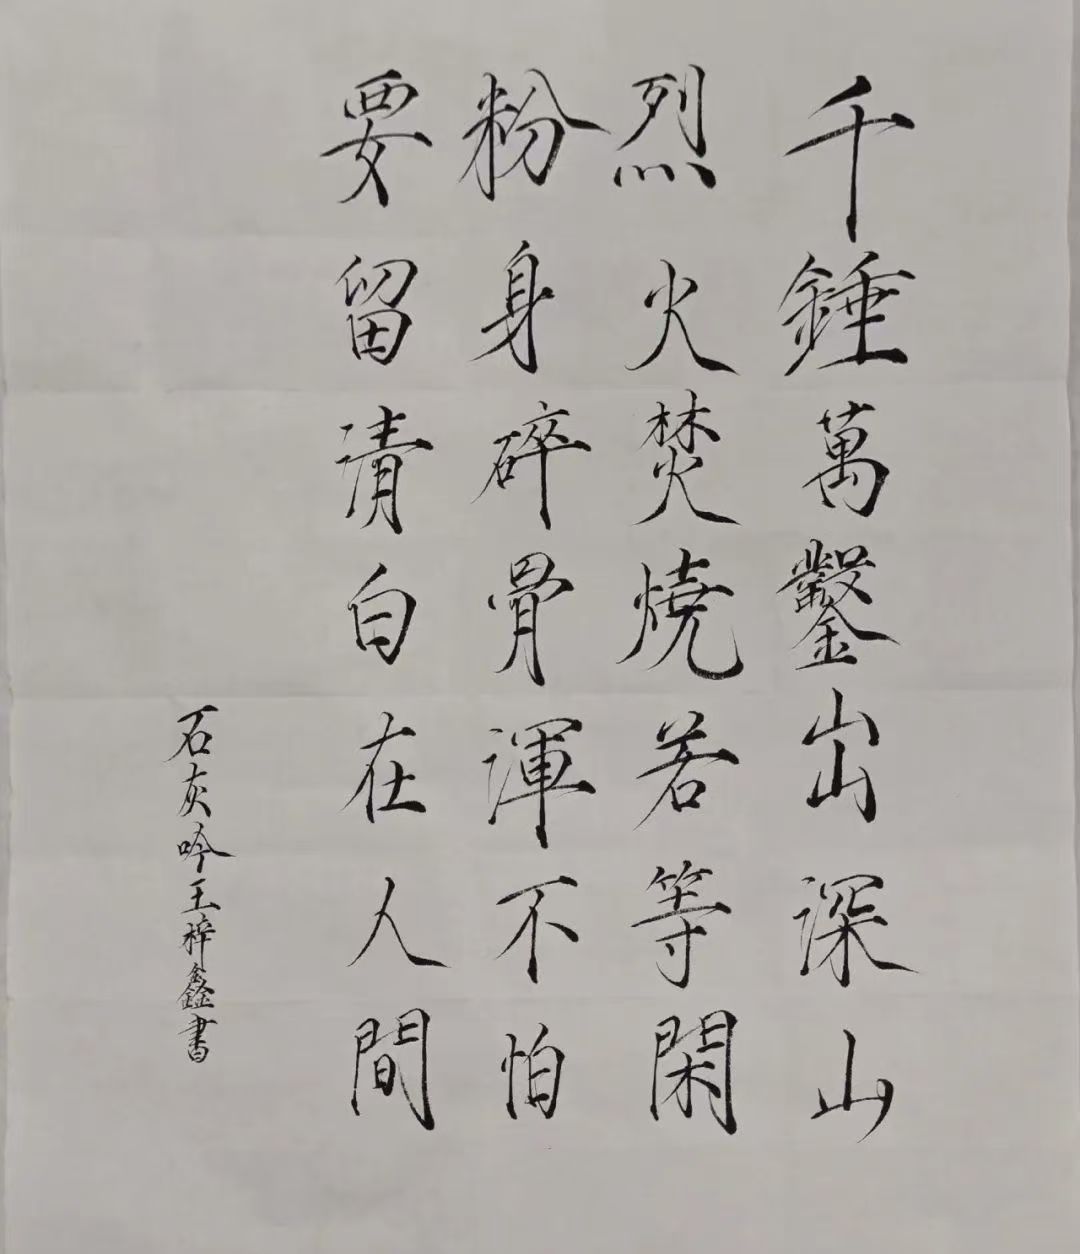 千錘萬鑿出深山
烈火焚燒若等閑
粉身碎骨渾不怕
要留清白在人間
石灰吟王梓鑫書